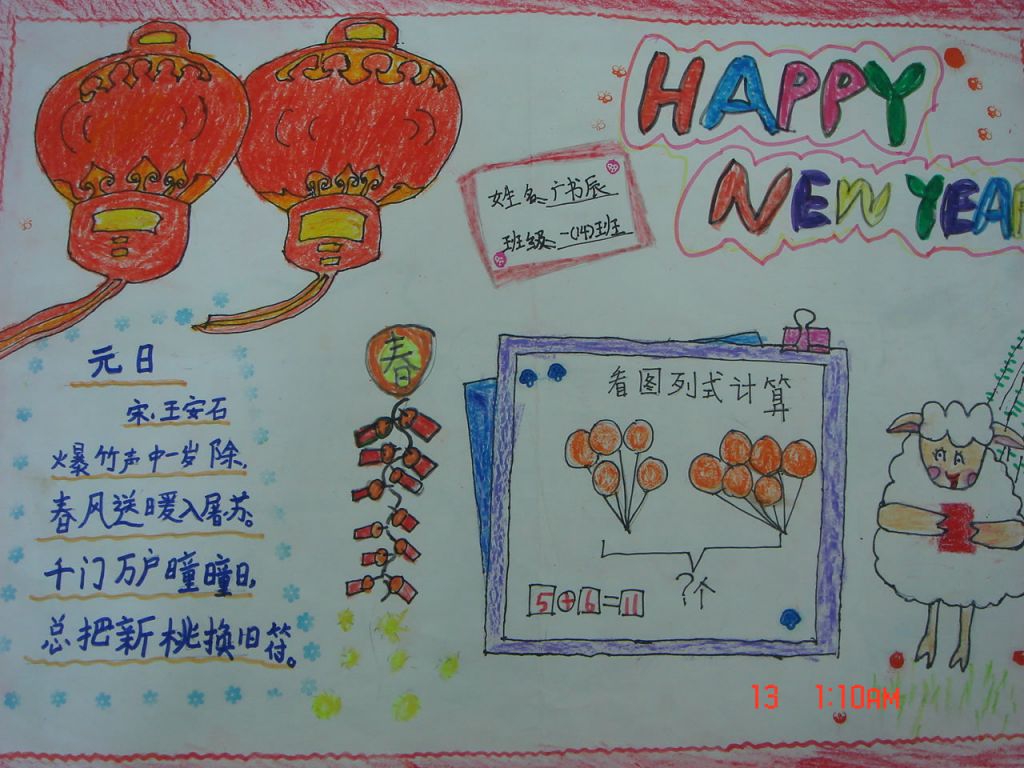 HAPPY
NEW YEAR
姓名:广书辰
班级:一(14)班班
元日
宋.王安石
爆竹声中一岁除,
春风送暖入屠苏。
千门万户曈曈日,
总把新桃换旧符。
春
看图列式计算
?个
5+6=11
13 1:10AM